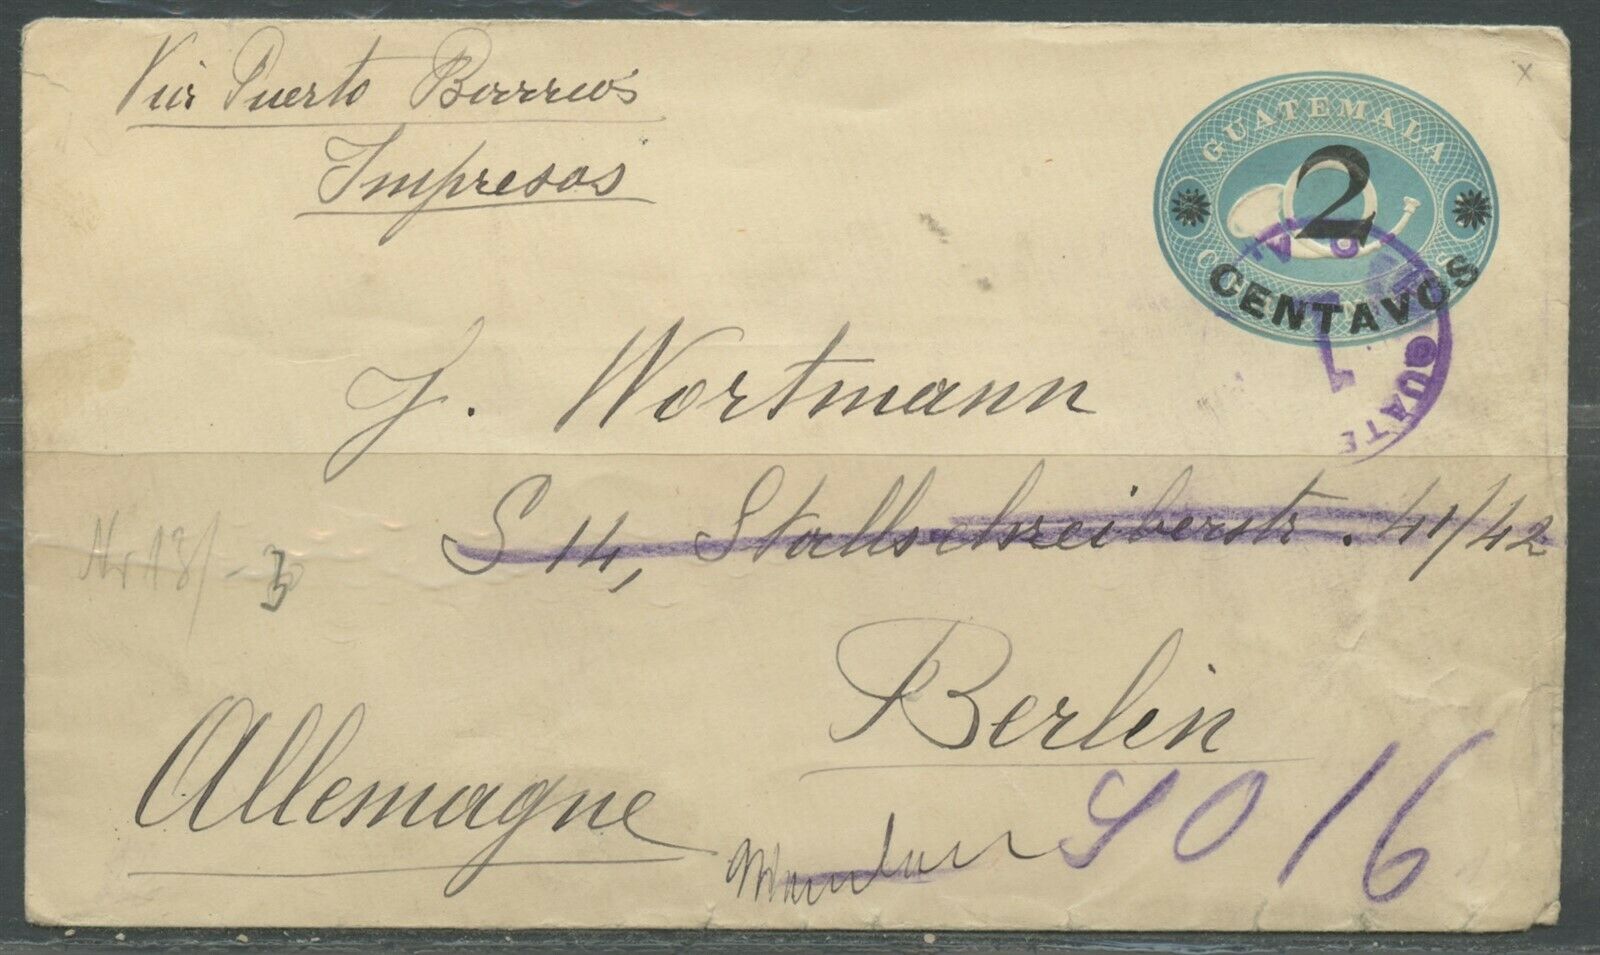 Via Puerto Barrios
Impresos
GUATEMALA
2
CENTAVOS
GUATE
J. Wortmann
S 14, Stallschreiberstr. 41/42
Berlin
Allemagne
SO 16